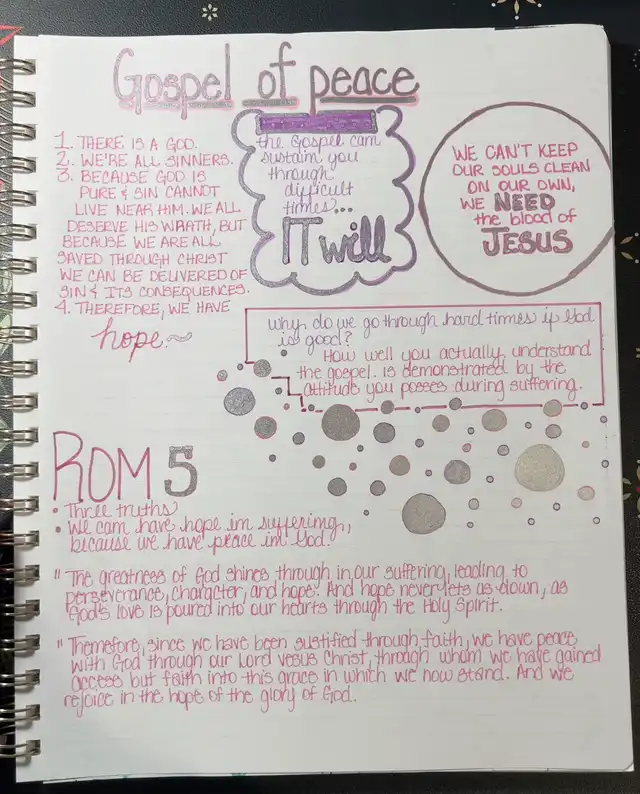 Gospel of peace
1. THERE IS A GOD.
2. WE'RE ALL SINNERS.
3. BECAUSE GOD IS
PURE & SIN CANNOT
LIVE NEAR HIM. WE ALL
DESERVE HIS WRATH, BUT
BECAUSE WE ARE ALL
SAVED THROUGH CHRIST
WE CAN BE DELIVERED OF
SIN & ITS CONSEQUENCES.
4. THEREFORE, WE HAVE
hope.~
the Gospel can
sustain you
through
difficult
times...
IT will
WE CAN'T KEEP
OUR SOULS CLEAN
ON OUR OWN,
WE NEED
the blood of
JESUS
why do we go through hard times if God
is good?
How well you actually understand
the gospel. is demonstrated by the
attitude you posses during suffering.
ROM 5
• Three truths
• We can have hope in suffering,
because we have peace in God.
" The greatness of God shines through in our suffering, leading to
perseverance, character, and hope. And hope never lets as down, as
God's love is poured into our hearts through the Holy Spirit.
" Themefore, since we have been sustified through faith, we have peace
with God through our Lord Vesus Christ, through whom we have gained
access but faith into this grace in which we now stand. And we
rejoice in the hope of the glory of God.